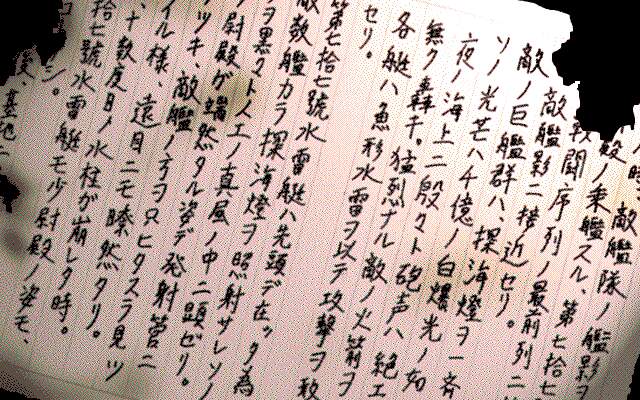 時、敵艦隊ノ艦影ヲ
殿ノ乗艦スル、第七拾七
戦闘序列ノ最前列ニ
敵艦影ニ接近セリ。
敵ノ巨艦群ハ、探海燈ヲ一斉
ソノ光芒ハ千億ノ白爆光ノ如
夜ノ海上ニ殷々ト砲声ハ絶エ
無ク轟キ、猛烈ナル敵ノ火箭ヲ
各艇ハ魚形水雷ヲ以テ攻撃ヲ敢
セリ。
第七拾七號水雷艇ハ先頭デ在ッタ為
敵数艦カラ探海燈ヲ照射サレ、ソノ
ヲ黒々ト ノ真風ノ中ニ顕ゼリ。
尉殿ガ端然タル姿デ発射菅ニ
ツキ、敵艦ノ方ヲ只ヒタスラ見ツ
イル様、遠目ニモ瞭然タリ。
十数度目ノ水柱が崩レタ時。
拾七號水雷艇モ少尉殿ノ姿モ、
シ。
基地ニ